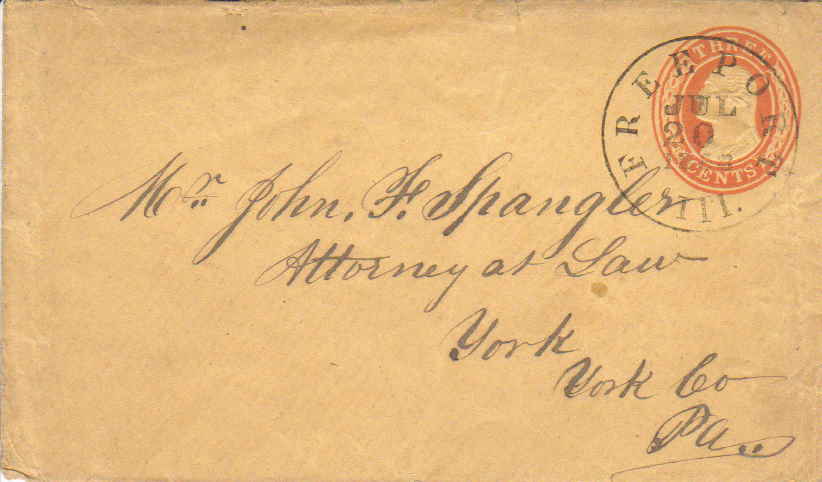 THREE
CENTS
FREEPORT
JUL
20
Ill.
Mr. John. F. Spangler
Attorney at Law
York
York Co
Pa.